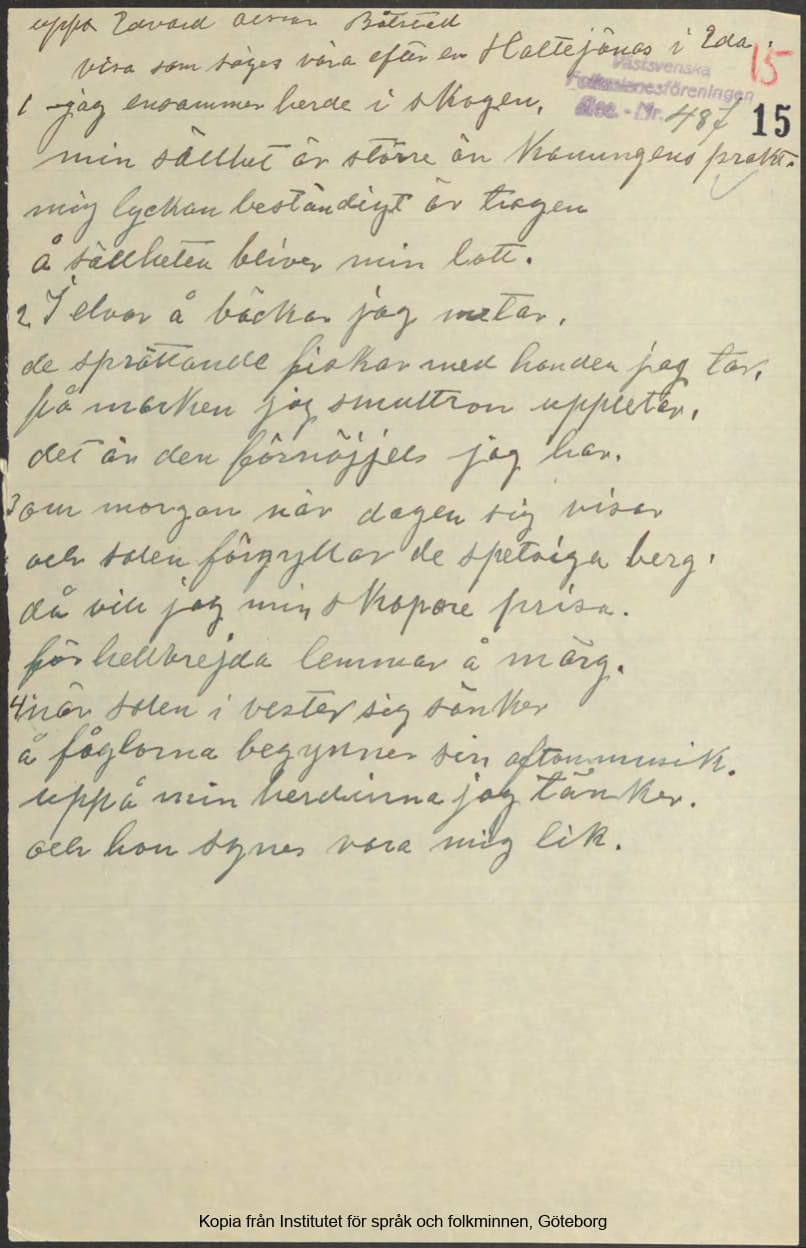 uppt Edvard Båtstad
visa som säges våra efter en Haltejönas i Eda.
15
Västsvenska
Folkminnesföreningen
Acc. - Nr. 487
15
1 jag ensammer herde i skogen,
min sällhet är större än Konungens prakt.
mig lyckan beständigt är trogen
å sällheten bliver min lott.
2 I elvar å bäckar jag metar,
de sprättande fiskar med handen jag tar,
på marken jag smultron uppletar,
det är den förnöjjels jag har.
3 om morgon när dagen sig visar
och solen förgyllar de spetsiga berg.
då vill jag min skapare prisa.
för hellbrejda lemmar å märg.
4 när solen i vester sig sänker
å fåglarna begynner sin aftonmusik.
uppå min herdinna jag tänker.
och hon synes vara mig lik.
Kopia från Institutet för språk och folkminnen, Göteborg